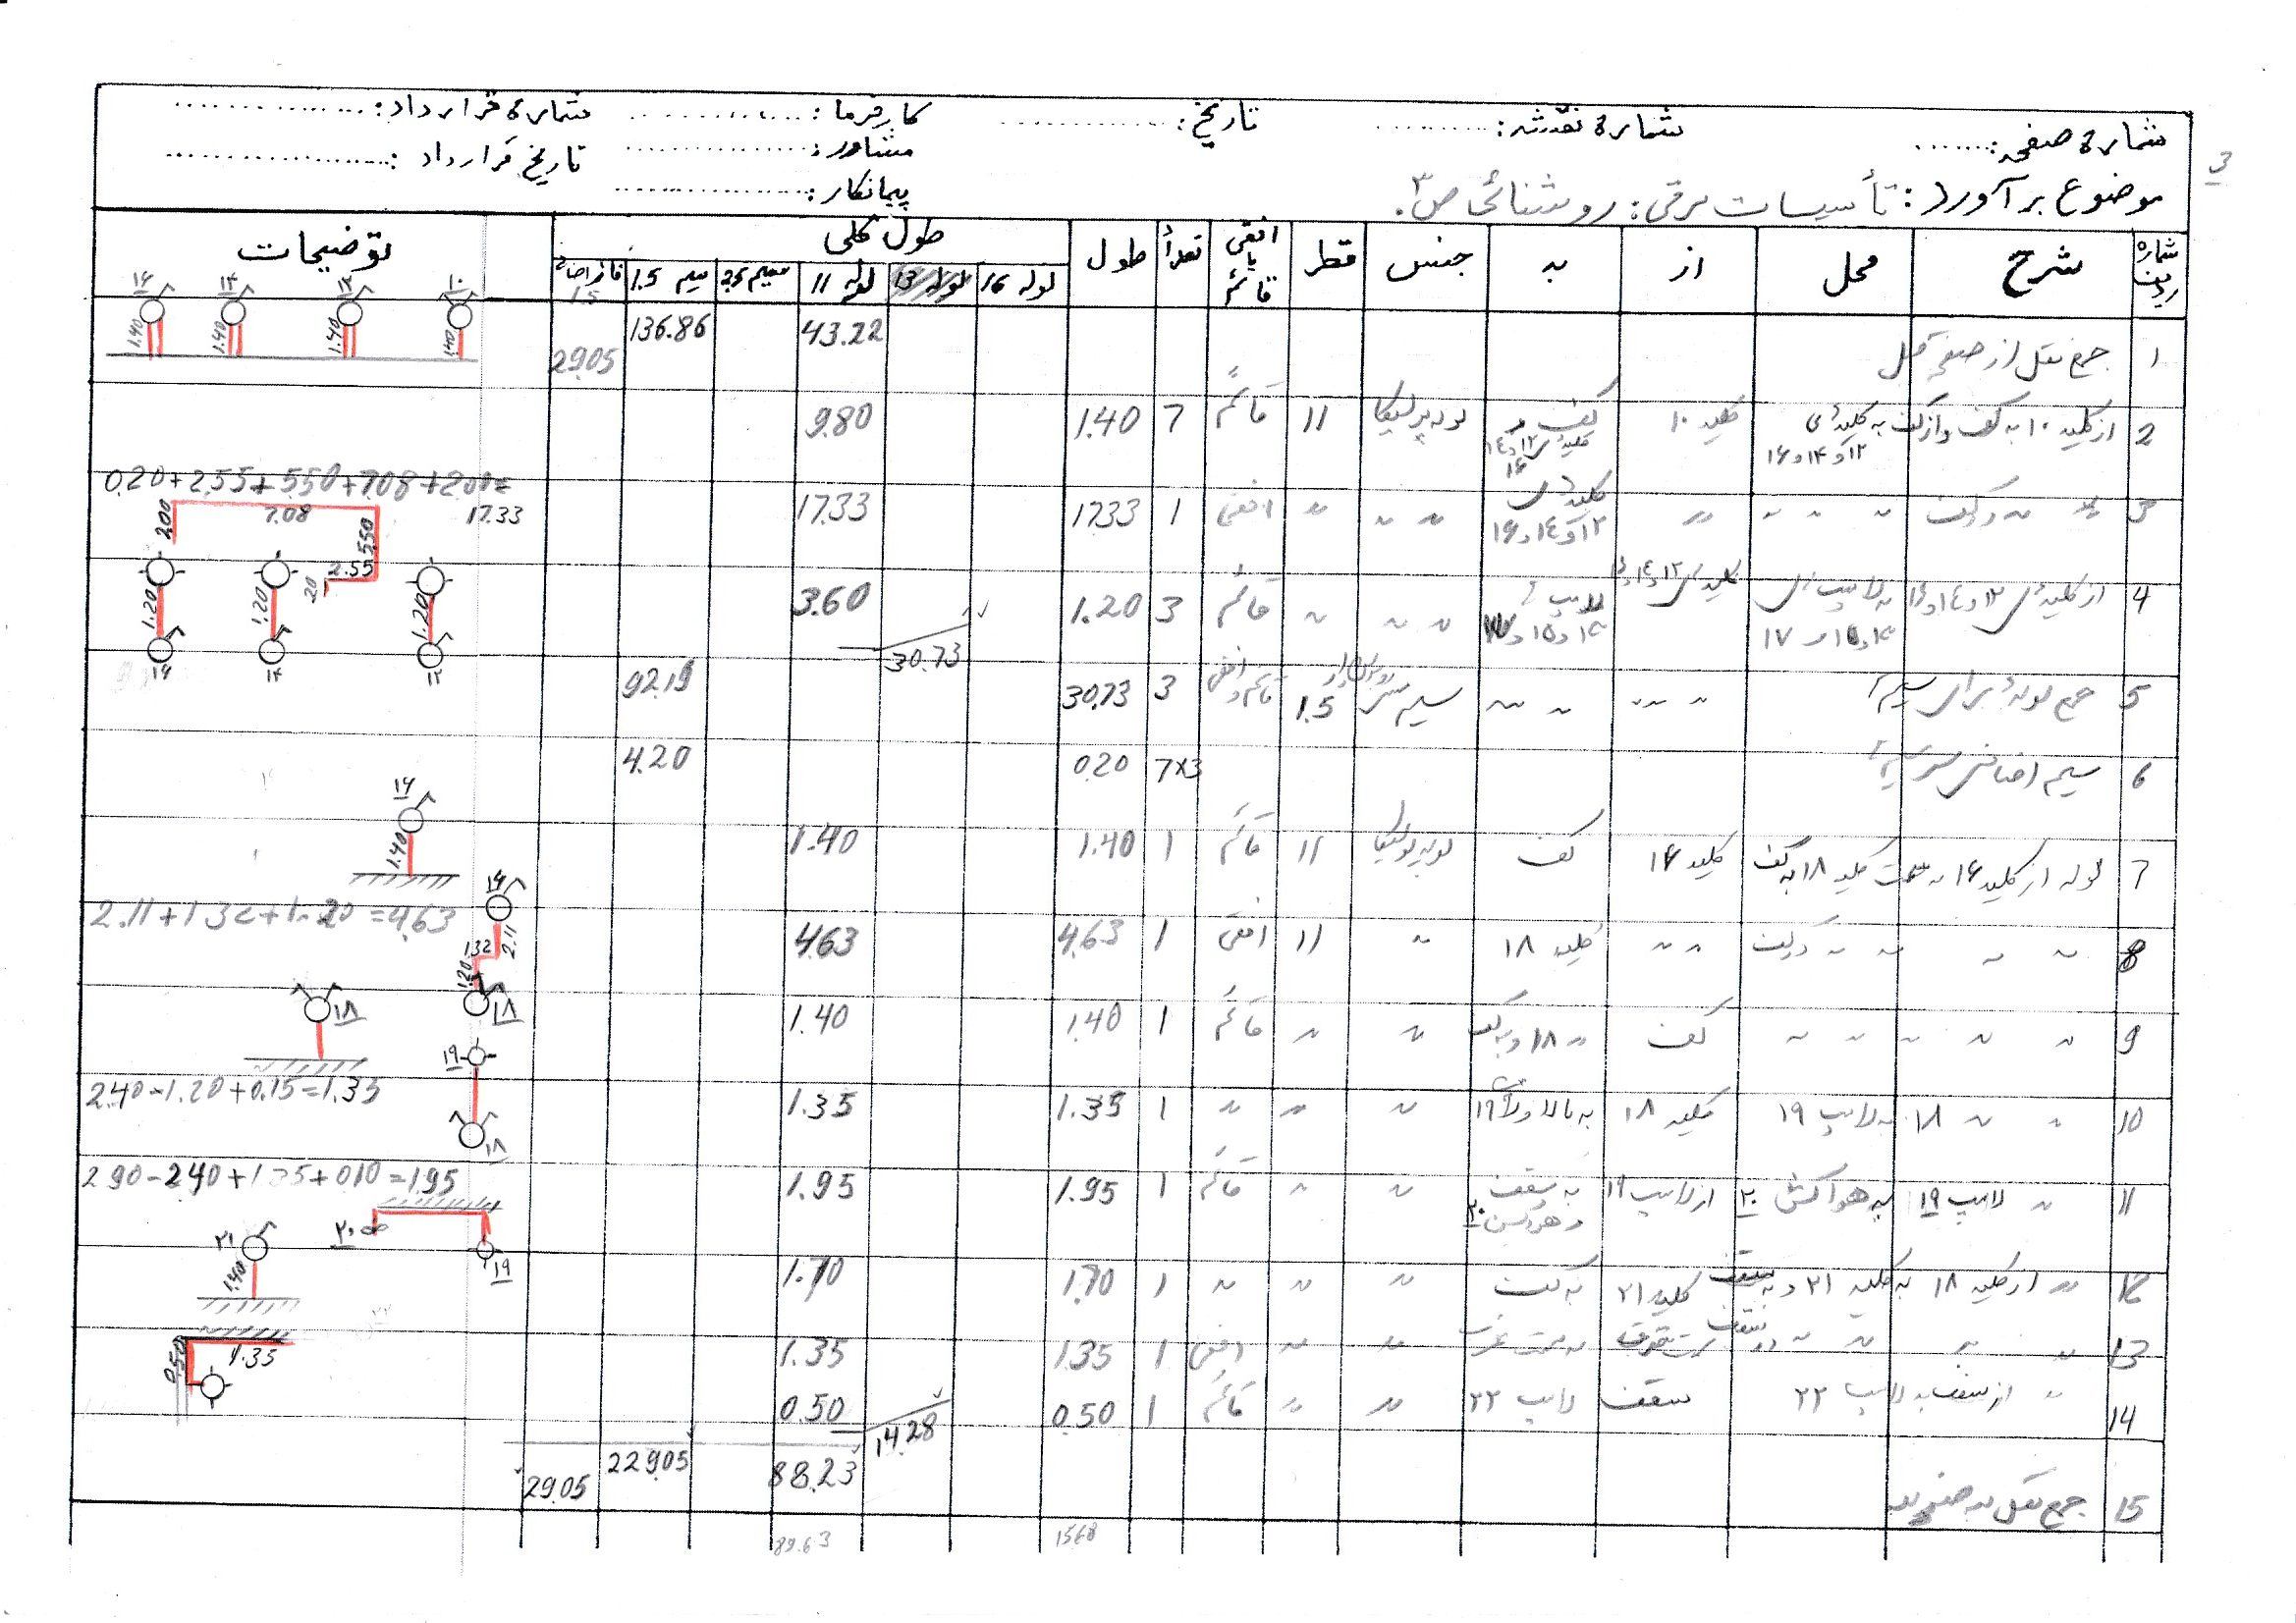 شماره صفحه: ....... شماره نقشه: .......... تاریخ: ............... کارفرما: ............... شماره قرارداد: ..................
مشاور: ................ تاریخ قرارداد: ....................
پیمانکار: ................
3
موضوع برآورد: تأسیسات برقی: روشنائی ص ۳.
شماره ردیف شرح محل از به جنس قطر افقی یا قائم تعداد طول طول کلی توضیحات
لوله 16 لوله 13 لوله 11 سیم 2.5 سیم 1.5 فاز اضافه 1.5
1 جمع نقل از صفحه قبل 43.22 136.86 29.05
۱۰ ۱۲ ۱۴ ۱۶
1.40 1.40 1.40 1.40
2 از کلید ۱۰ به کف و از کف به کلیدهای ۱۲ و ۱۴ و ۱۶ کلید ۱۰ کف و کلیدهای ۱۲ و ۱۴ و ۱۶ لوله پولیکا 11 قائم 7 1.40 9.80
0.20+2.55+5.50+7.08+2.00=
17.33
3 〃 〃 در کف 〃 〃 〃 〃 کلیدهای ۱۲ و ۱۴ و ۱۶ 〃 〃 〃 افقی 1 17.33 17.33
2.00 7.08 5.50 2.55 .20
4 از کلیدهای ۱۲ و ۱۴ و ۱۶ به لامپهای ۱۳ و ۱۵ و ۱۷ کلیدهای ۱۲ و ۱۴ و ۱۶ لامپهای ۱۳ و ۱۵ و ۱۷ 〃 〃 〃 قائم 3 1.20 3.60
30.73
1.20 1.20 1.20
۱۶ ۱۴ ۱۲
5 جمع لوله‌ها برای سیم‌ها 〃 〃 〃 〃 〃 سیم مسی 1.5 قائم و افقی 3 30.73 92.19
6 سیم اضافی سر سیم‌ها 7x3 0.20 4.20
7 لوله از کلید ۱۶ به سمت کلید ۱۸ به کف کلید ۱۶ کف لوله پولیکا 11 قائم 1 1.40 1.40
۱۶ 1.40
8 〃 〃 〃 〃 در کف 〃 〃 کلید ۱۸ 〃 11 افقی 1 4.63 4.63
2.11+1.32+1.20=4.63
۱۶ 2.11 1.32 1.20 ۱۸
9 〃 〃 〃 〃 〃 〃 کف 〃 ۱۸ و به کف 〃 〃 قائم 1 1.40 1.40
۱۸
10 〃 〃 ۱۸ به لامپ ۱۹ کلید ۱۸ به بالا و ۱۹ 〃 〃 〃 1 1.35 1.35
2.40-1.20+0.15=1.35
۱۹ ۱۸
11 〃 لامپ ۱۹ به هواکش ۲۰ از لامپ ۱۹ به سقف و هواکش ۲۰ 〃 〃 قائم 1 1.95 1.95
2.90-2.40+1.35+0.10=1.95
۲۰ ۱۹
12 〃 از کلید ۱۸ به کلید ۲۱ و به سقف کلید ۲۱ به کف 〃 〃 〃 1 1.70 1.70
۲۱ 1.40
13 〃 〃 〃 〃 در سقف 〃 〃 افقی 1 1.35 1.35
1.35 0.50
14 〃 از سقف به لامپ ۲۲ سقف لامپ ۲۲ 〃 〃 قائم 1 0.50 0.50
14.28
15 جمع نقل به صفحه بعد 88.23 229.05 29.05
15.68 89.63